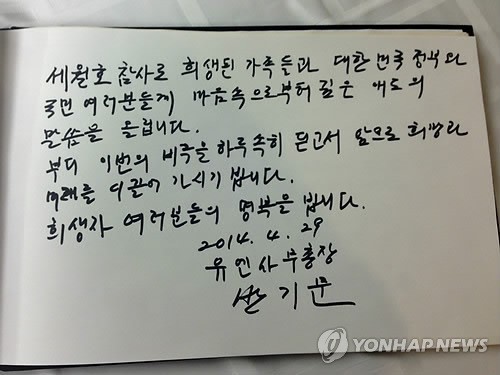 세월호 참사로 희생된 가족들과 대한민국 정부와
국민 여러분들께 마음속으로부터 깊은 애도의
말씀을 올립니다.
부디 이번의 비극을 하루속히 딛고서 앞으로 희망과
미래를 이끌어 가시기 빕니다.
희생자 여러분들의 명복을 빕니다.
2014. 4. 29
유엔사무총장
반기문
YONHAP NEWS